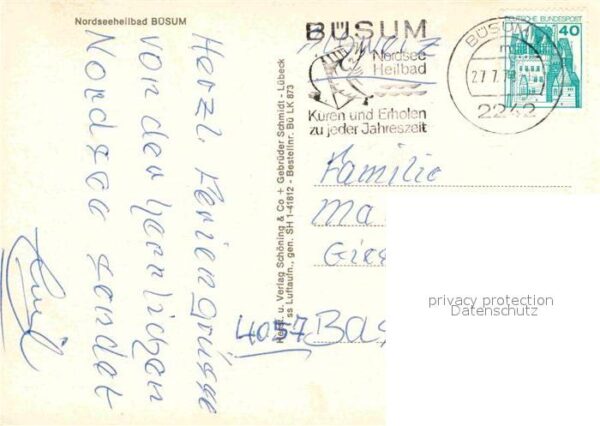 Nordseeheilbad BÜSUM
Herzl. Feriengrüsse
von der herrlichen
Nordsee sendet
Hersg. u. Verlag Schöning & Co + Gebrüder Schmidt - Lübeck
ss Luftaufn., gen. SH 1-41812 - Bestellnr. Bü LK 873
BÜSUM
Nordsee-
Heilbad
Kuren und Erholen
zu jeder Jahreszeit
Schweiz
BÜSUM
27.7.79
2242
DEUTSCHE BUNDESPOST
40
Familie
Ma
Gies
4057 Bas
privacy protection
Datenschutz